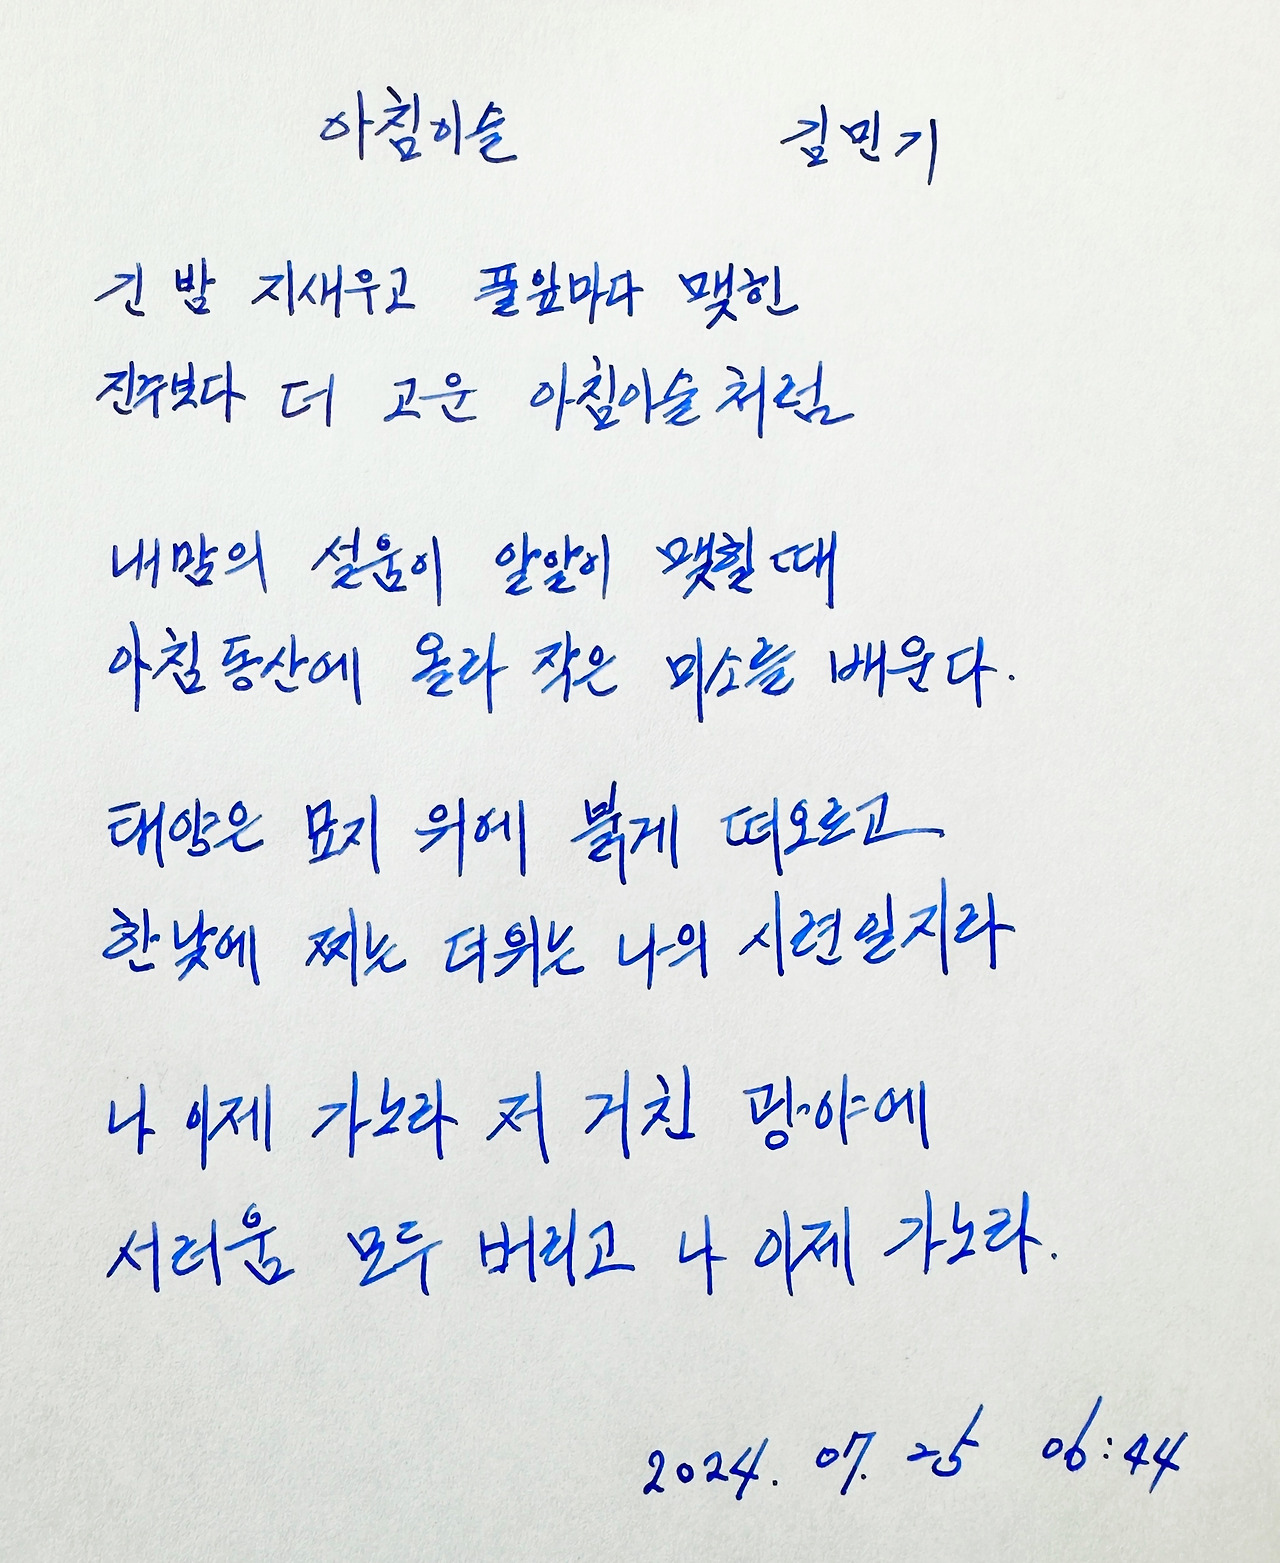 아침이슬 김민기
긴 밤 지새우고 풀잎마다 맺힌
진주보다 더 고운 아침이슬처럼
내맘의 설움이 알알이 맺힐 때
아침 동산에 올라 작은 미소를 배운다.
태양은 묘지 위에 붉게 떠오르고
한낮에 찌는 더위는 나의 시련일지라
나 이제 가노라 저 거친 광야에
서러움 모두 버리고 나 이제 가노라.
2024. 07. 25 06:44